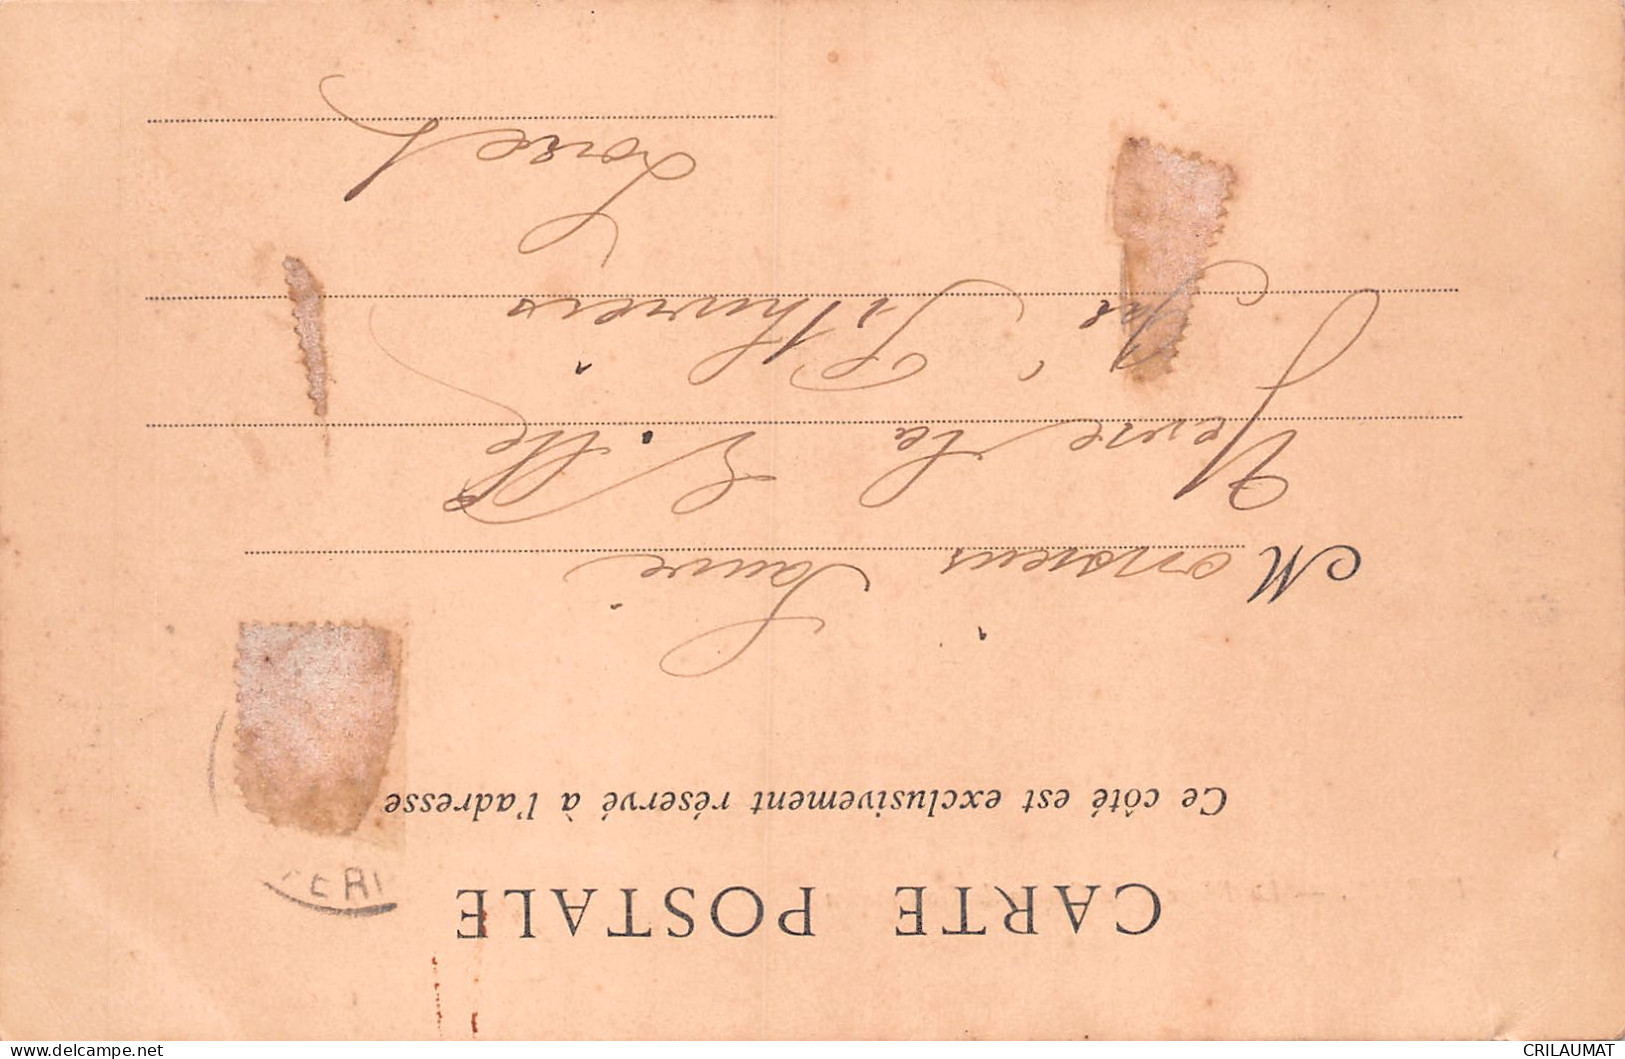 CARTE POSTALE
Ce côté est exclusivement réservé à l'adresse
Monsieur Sauvé
Yevre la Ville
par Pithiviers
Loiret
delcampe.net
CRILAUMAT